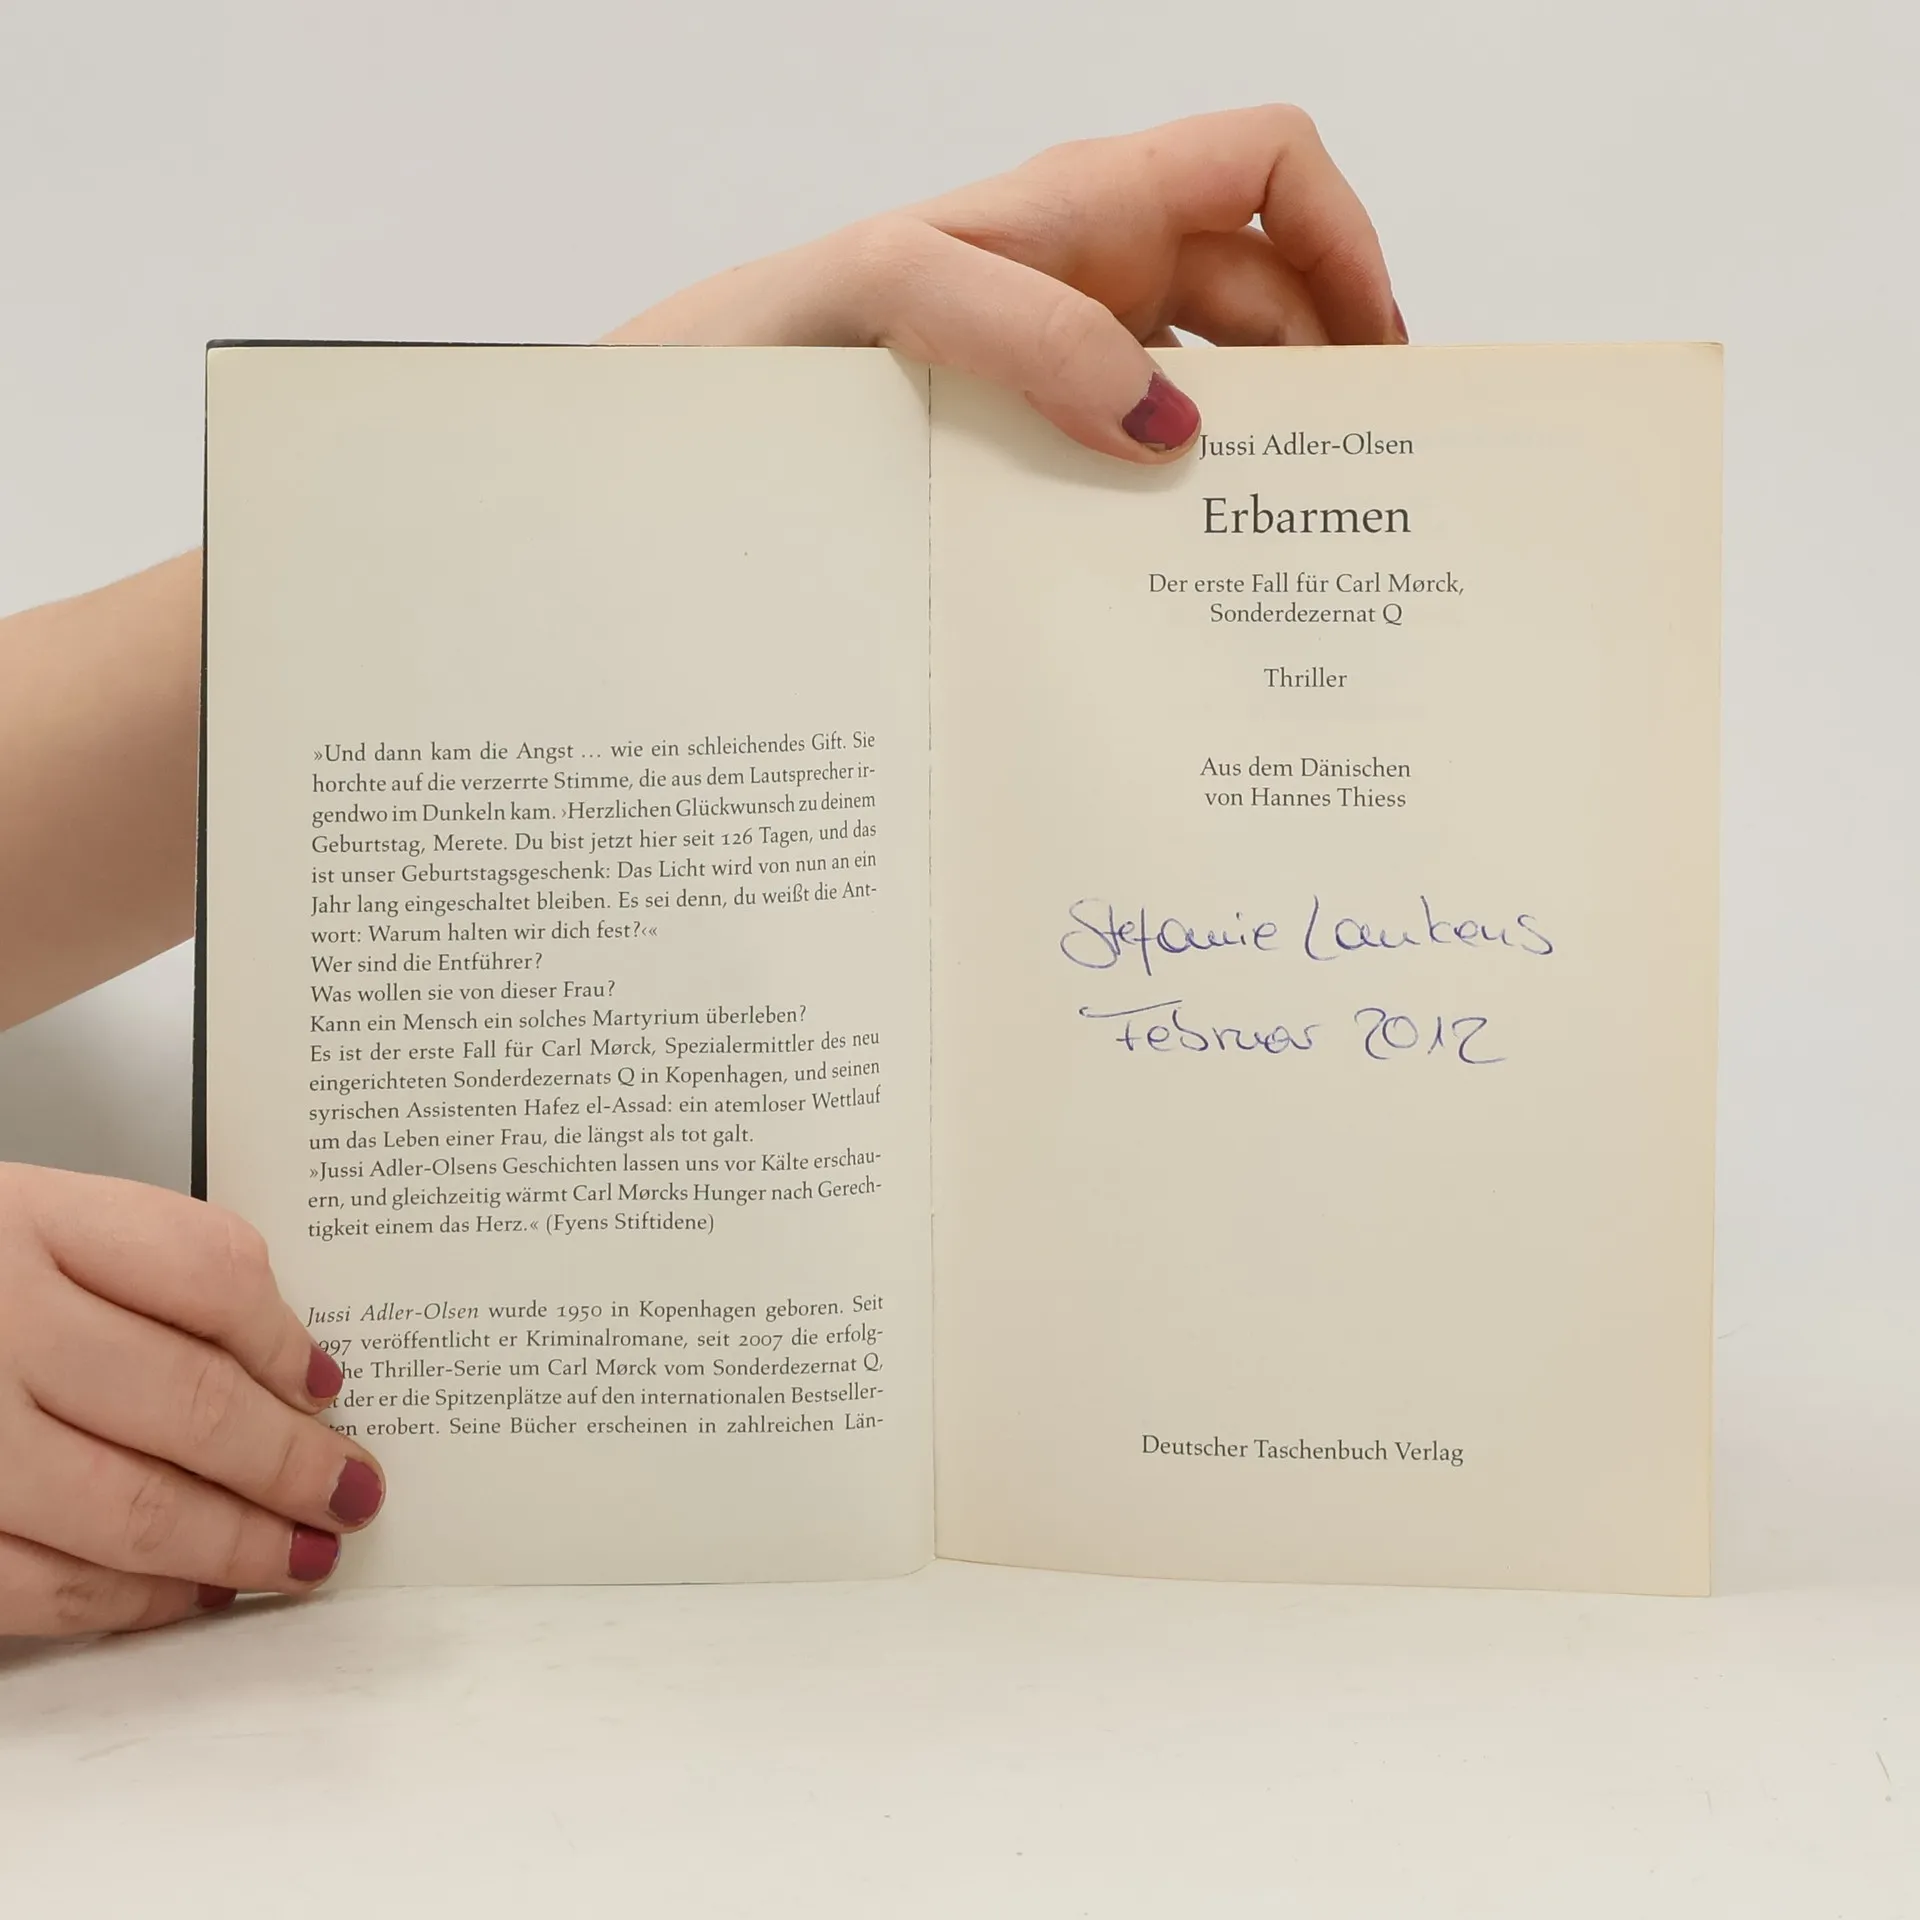 »Und dann kam die Angst … wie ein schleichendes Gift. Sie
horchte auf die verzerrte Stimme, die aus dem Lautsprecher ir-
gendwo im Dunkeln kam. ›Herzlichen Glückwunsch zu deinem
Geburtstag, Merete. Du bist jetzt hier seit 126 Tagen, und das
ist unser Geburtstagsgeschenk: Das Licht wird von nun an ein
Jahr lang eingeschaltet bleiben. Es sei denn, du weißt die Ant-
wort: Warum halten wir dich fest?‹«
Wer sind die Entführer?
Was wollen sie von dieser Frau?
Kann ein Mensch ein solches Martyrium überleben?
Es ist der erste Fall für Carl Mørck, Spezialermittler des neu
eingerichteten Sonderdezernats Q in Kopenhagen, und seinen
syrischen Assistenten Hafez el-Assad: ein atemloser Wettlauf
um das Leben einer Frau, die längst als tot galt.
»Jussi Adler-Olsens Geschichten lassen uns vor Kälte erschau-
ern, und gleichzeitig wärmt Carl Mørcks Hunger nach Gerech-
tigkeit einem das Herz.« (Fyens Stiftidene)
Jussi Adler-Olsen wurde 1950 in Kopenhagen geboren. Seit
997 veröffentlicht er Kriminalromane, seit 2007 die erfolg-
he Thriller-Serie um Carl Mørck vom Sonderdezernat Q,
der er die Spitzenplätze auf den internationalen Bestseller-
en erobert. Seine Bücher erscheinen in zahlreichen Län-
Jussi Adler-Olsen
Erbarmen
Der erste Fall für Carl Mørck,
Sonderdezernat Q
Thriller
Aus dem Dänischen
von Hannes Thiess
Stefanie Lankens
Februar 2012
Deutscher Taschenbuch Verlag